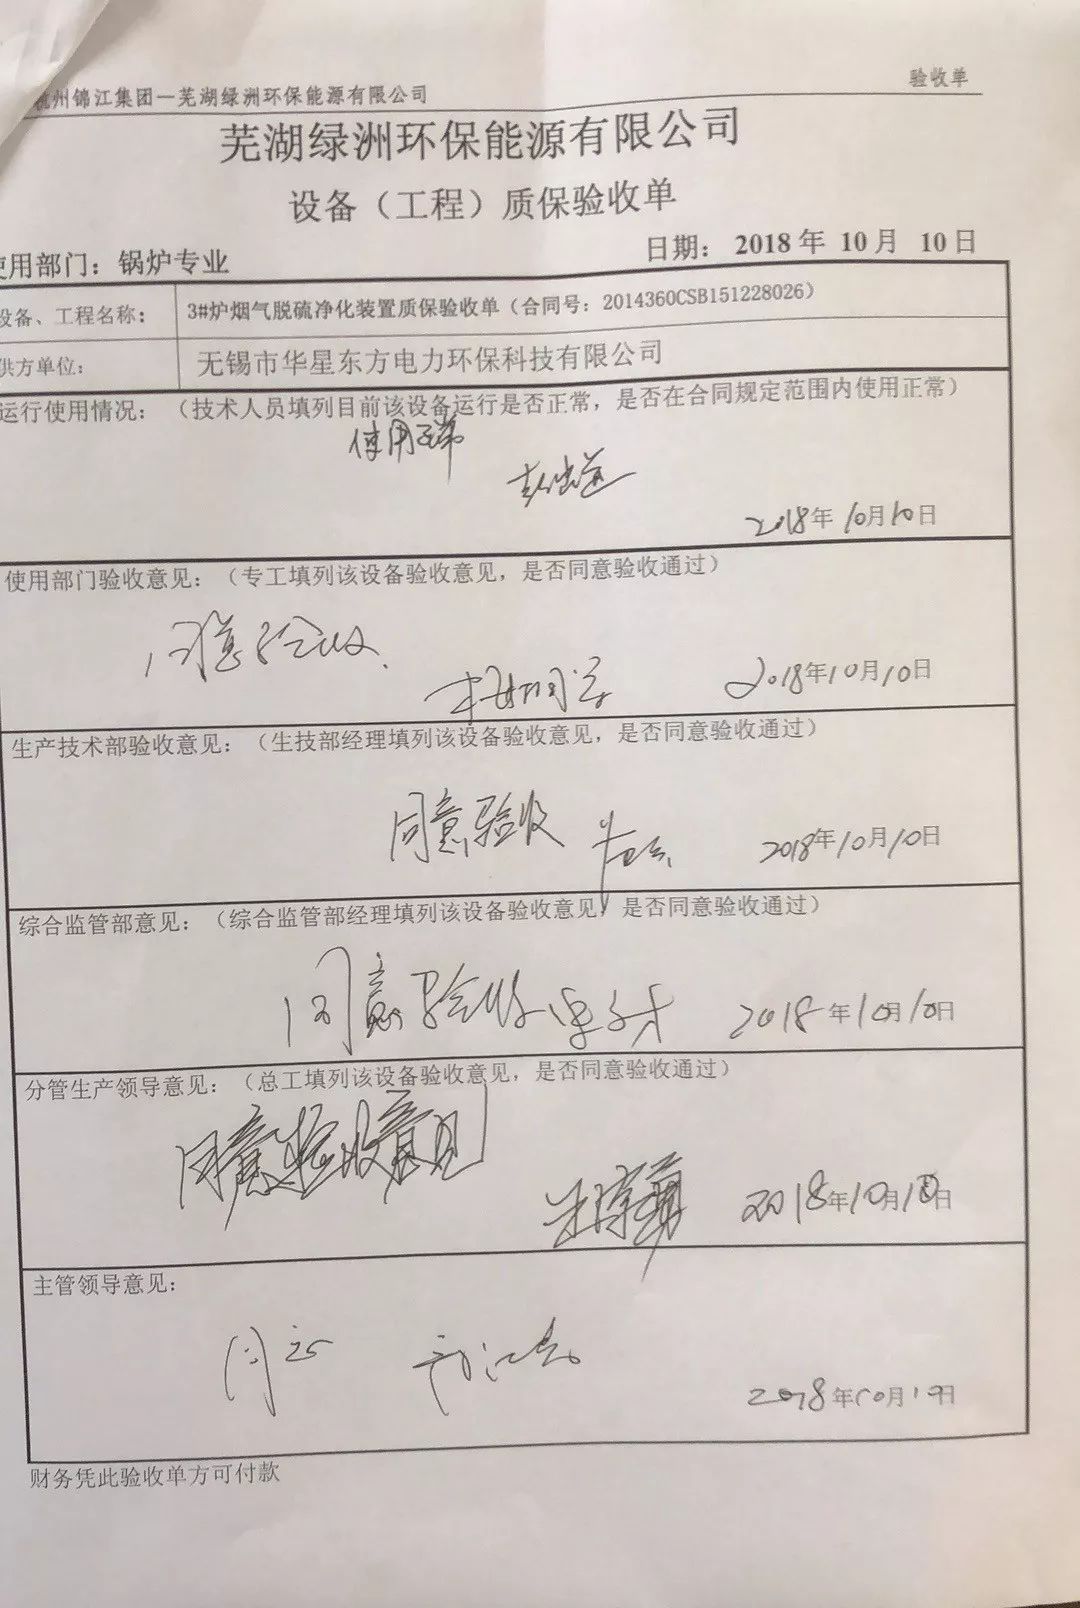 杭州锦江集团—芜湖绿洲环保能源有限公司 验收单
芜湖绿洲环保能源有限公司
设备（工程）质保验收单
使用部门：锅炉专业 日期： 2018 年 10 月 10 日
设备、工程名称： 3#炉烟气脱硫净化装置质保验收单（合同号：2014360CSB151228026）
供方单位： 无锡市华星东方电力环保科技有限公司
运行使用情况：（技术人员填列目前该设备运行是否正常，是否在合同规定范围内使用正常）
使用正常
2018年10月10日
使用部门验收意见：（专工填列该设备验收意见，是否同意验收通过）
同意验收.
2018年10月10日
生产技术部验收意见：（生技部经理填列该设备验收意见，是否同意验收通过）
同意验收
2018年10月10日
综合监管部意见：（综合监管部经理填列该设备验收意见，是否同意验收通过）
同意验收
2018年10月10日
分管生产领导意见：（总工填列该设备验收意见，是否同意验收通过）
同意验收意见
2018年10月10日
主管领导意见：
同意
2018年10月 日
财务凭此验收单方可付款